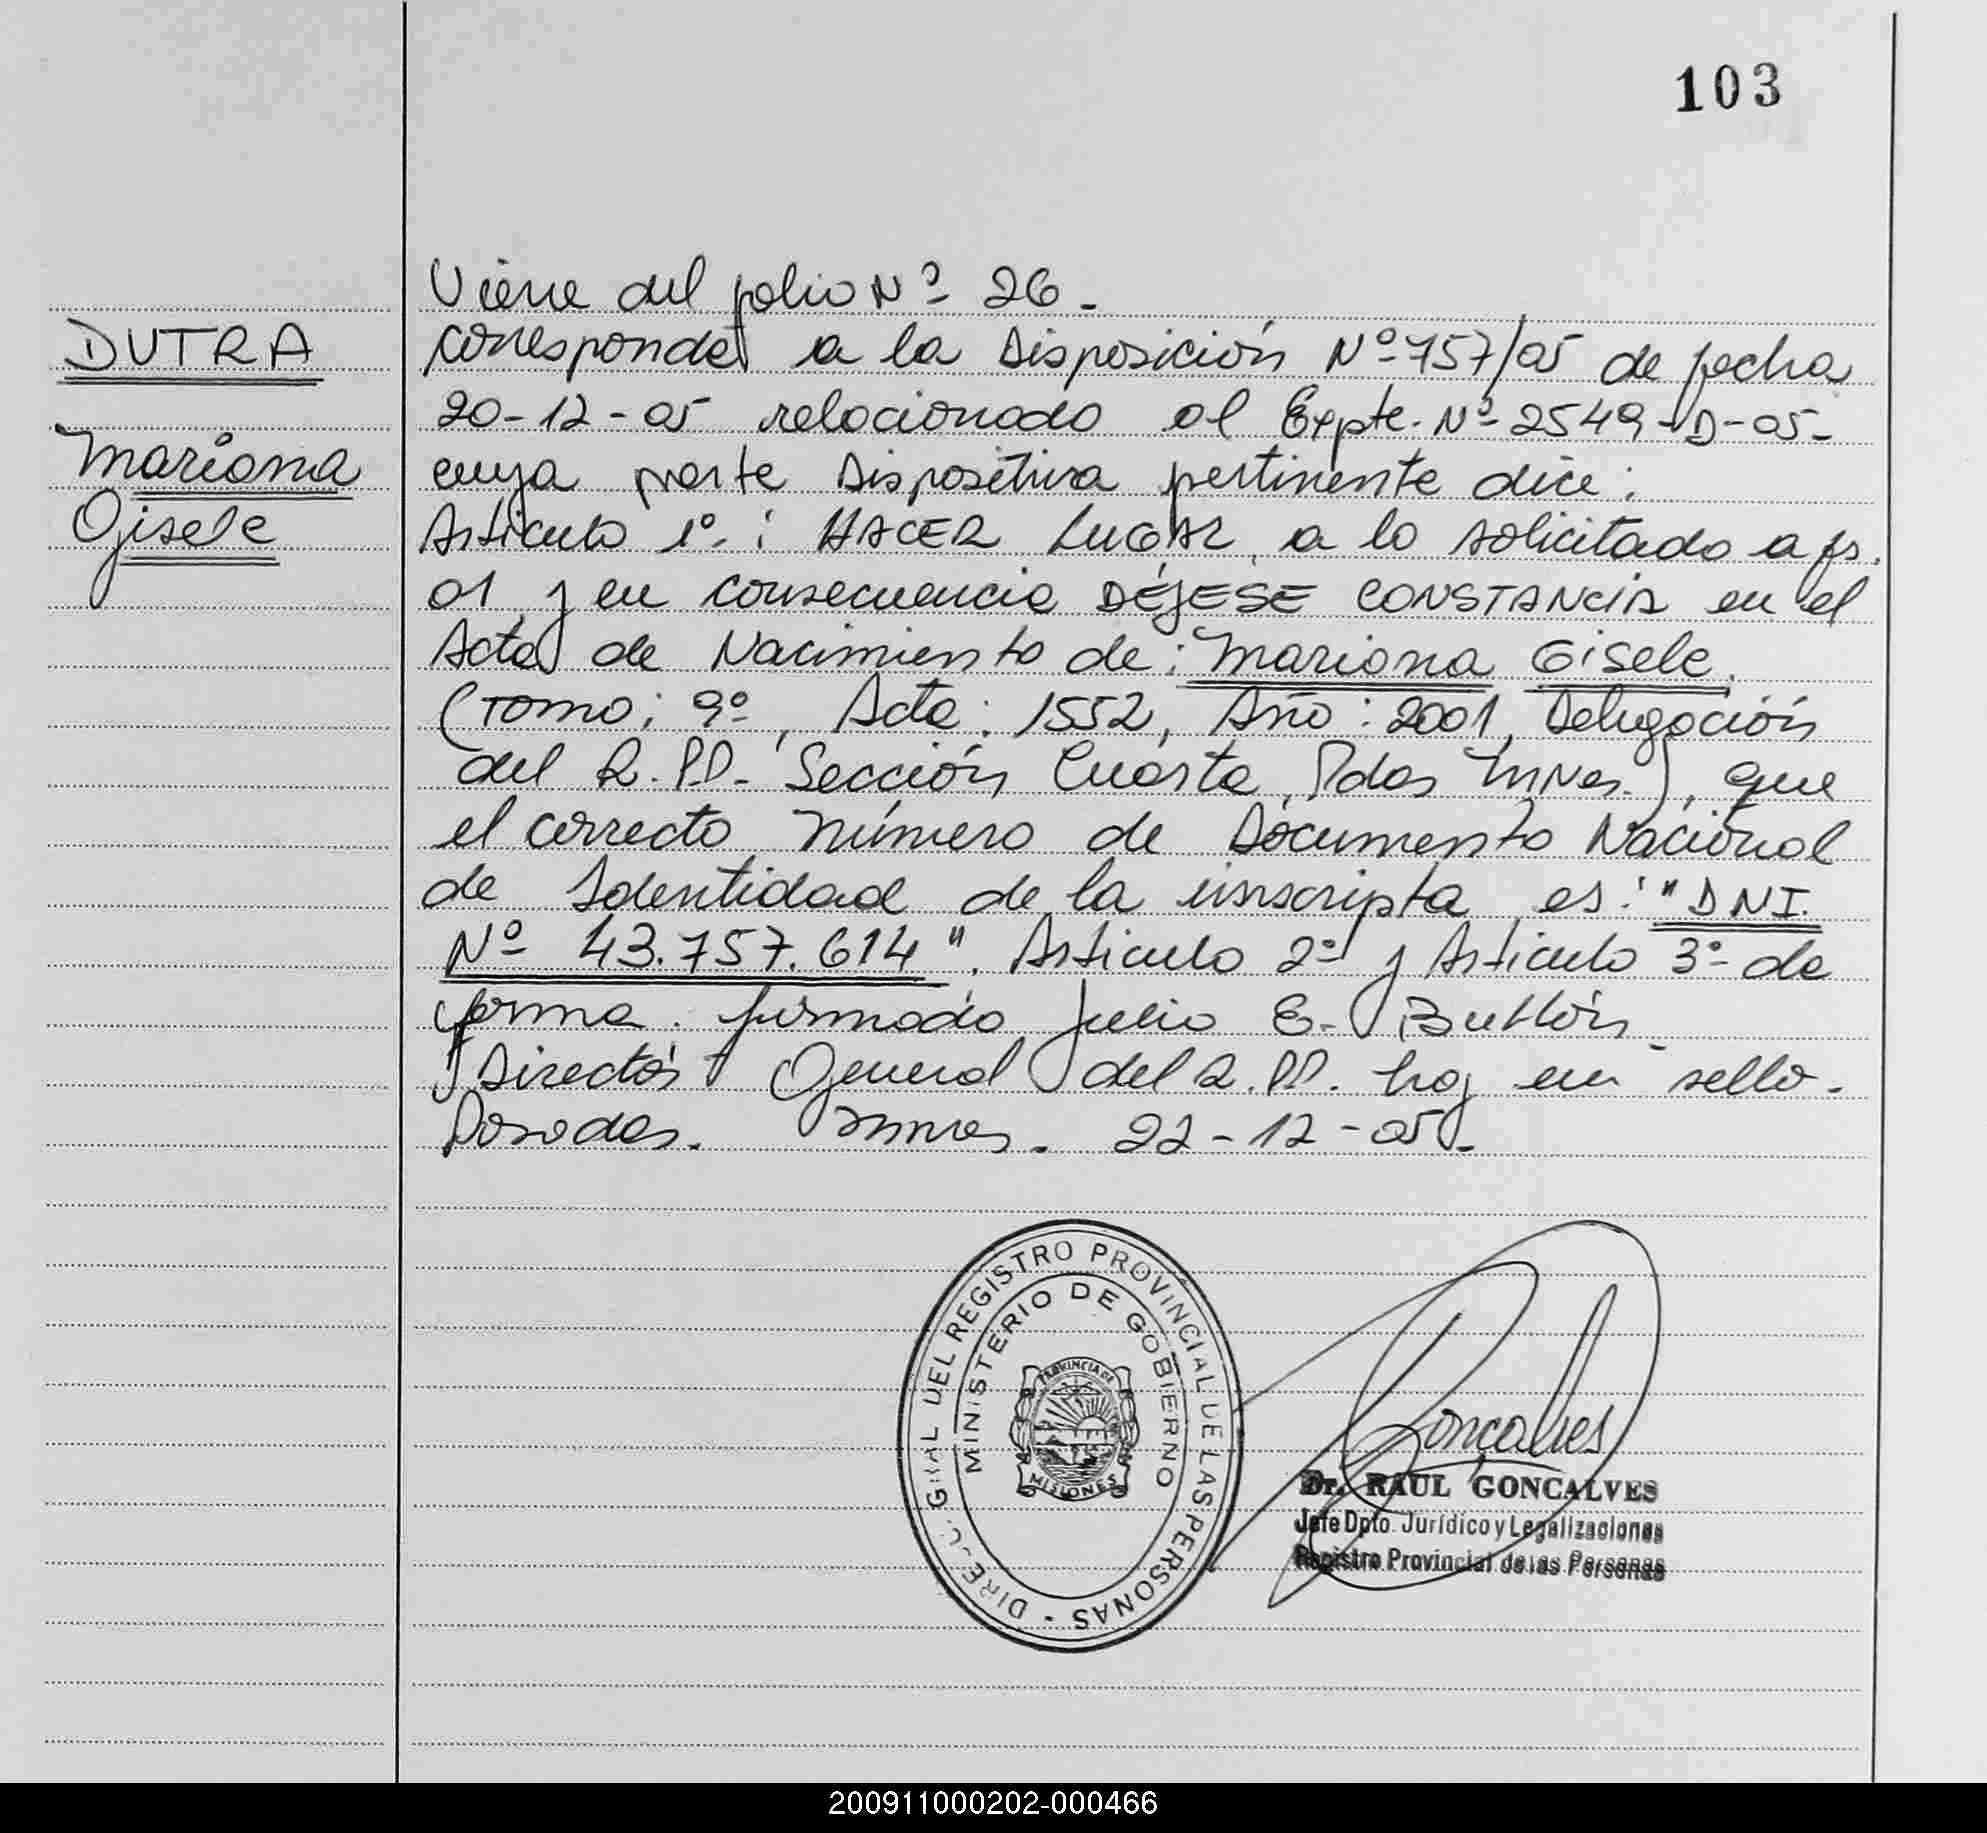 103
DUTRA
Mariana
Gisele
Viene del folio Nº 26.
corresponde a la Disposición Nº 757/05 de fecha
20-12-05 relacionado al Expte. Nº 2549-D-05-
cuya parte Dispositiva pertinente dice:
Artículo 1º.: HACER LUGAR a lo solicitado a fs.
01 y en consecuencia DÉJESE CONSTANCIA en el
Acta de Nacimiento de: Mariana Gisele
(Tomo: 9º, Acta: 1552, Año: 2001, Delegación
del R.P.P. Sección Cuarta, Pdas Mnes.), que
el correcto número de Documento Nacional
de Identidad de la inscripta es: "DNI.
Nº 43.757.614". Artículo 2º y Artículo 3º de
forma. firmado Julio E.
Director General del R.P.P. hay un sello.
Posadas. Mnes. 22-12-05.
DIREC. GRAL DEL REGISTRO PROVINCIAL DE LAS PERSONAS -
MINISTERIO DE GOBIERNO
PROVINCIA DE
MISIONES
Gonçalves
Dr. RAUL GONCALVES
Jefe Dpto. Jurídico y Legalizaciones
Registro Provincial de las Personas
200911000202-000466